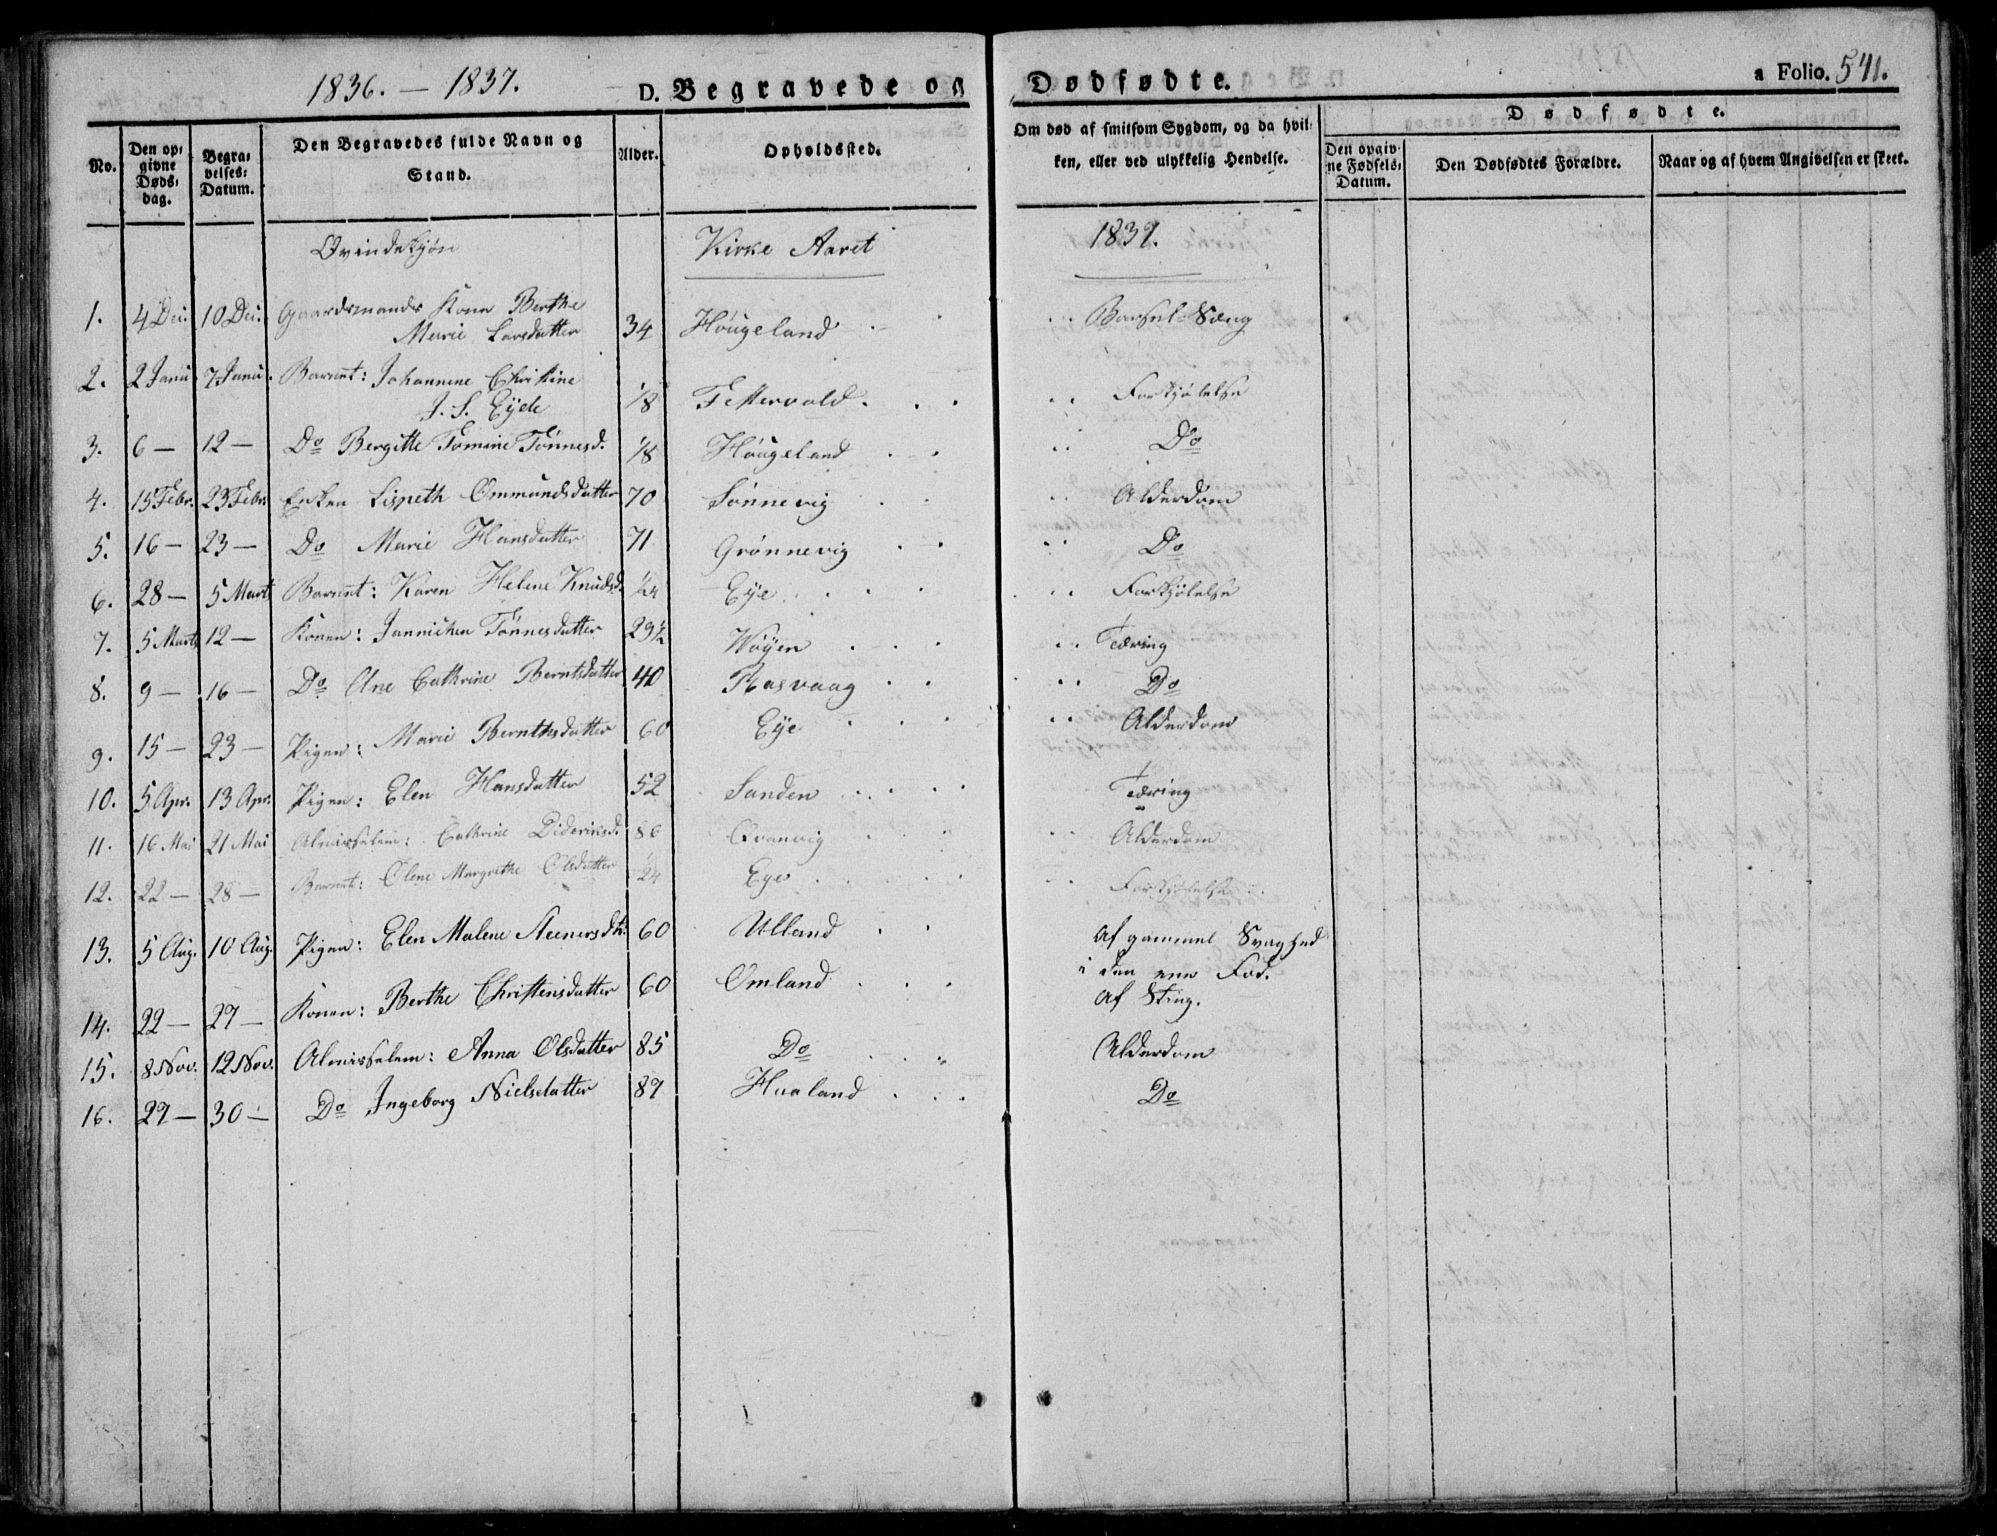 1836. — 1837. D. Begravede og Dødfødte. a Folio. 541.
No. | Den opgivne Dødsdag. | Begravelses-Datum. | Den Begravedes fulde Navn og Stand. | Alder. | Opholdssted. | Om død af smitsom Sygdom, og da hvilken, eller ved ulykkelig Hendelse. | Dødfødte. | Den opgivne Fødsels-Datum. | Den Dødfødtes Forældre. | Naar og af hvem Angivelsen er skeet.
Qvindekjøn Kirke Aaret 1837.
1. 4 Dec. 10 Dec. Gaardmands Kone Berthe
Marie Larsdatter 34 Høugeland Barsel-Sæng
2. 2 Janu. 7 Janu. Barnet: Johannine Christine
J. S. Eyde 1/8 Fettervold. Forkjølelse
3. 6 — 12 — Do Bergitte Tomine Tönnesd. 1/8 Höugeland Do
4. 15 Febr. 23 Febr. Enken Lispeth Ommundsdatter 70 Sönnevig Alderdom
5. 16 — 23 — Do Marie Hansdatter 71 Grönnevig Do
6. 28 — 5 Marts Barnet: Karen Helene Knudsd. 1/24 Eye Forkjölelse
7. 5 Marts 12 — Konen: Jannichen Tönnesdatter 29½ Wöyen Tæring
8. 9 — 16 — Do Ane Cathrine Berntsdatter 40 Rasvaag Do
9. 15 — 23 — Pigen: Marie Bernthsdatter 60 Eye Alderdom
10. 5 Apr. 13 Apr. Pigen: Elen Hansdatter 52 Sanden Tæring
11. 16 Mai 21 Mai Almisselem: Cathrine Dideriksd. 86 Qvanvig Alderdom
12. 22 — 28 — Barnet: Olene Margrethe Olsdatter 1/24 Eye Forkjølelse
13. 5 Aug. 10 Aug. Pigen: Elen Malene Steenersdtr. 60 Ulland Af gammel Svaghed
i den ene Fod.
14. 22 — 27 — Konen: Berthe Christensdatter 60 Omland Af Sting.
15. 8 Nov. 12 Nov. Almisselem: Anna Olsdatter 85 Do Alderdom
16. 27 — 30 — Do Ingeborg Nielsdatter 87 Hualand Do